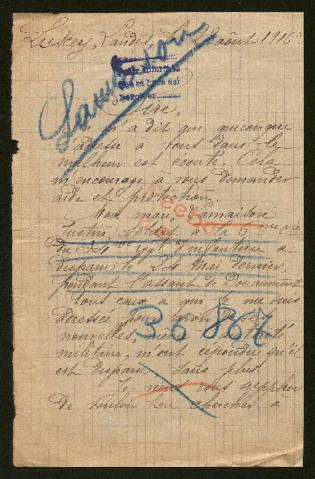 Luxey, Landes, le août 1916
Lamaison
Sire,
m'a dit que quiconque
s'adresse à vous dans le
malheur est écouté. Cela
m'encourage à vous demander
aide et protection.
Mon mari, Lamaison
Justin, à la 6
du 34 Regt d'Infanterie a
disparu le 24 Mai dernier,
pendant l'assaut de Douaumont
Tous ceux à qui je me suis
adressée pour avoir de
nouvelles,
militaire, m'ont répondu qu'il
est disparu sans plus.
36867
Je vous supplier
de vouloir bien chercher à